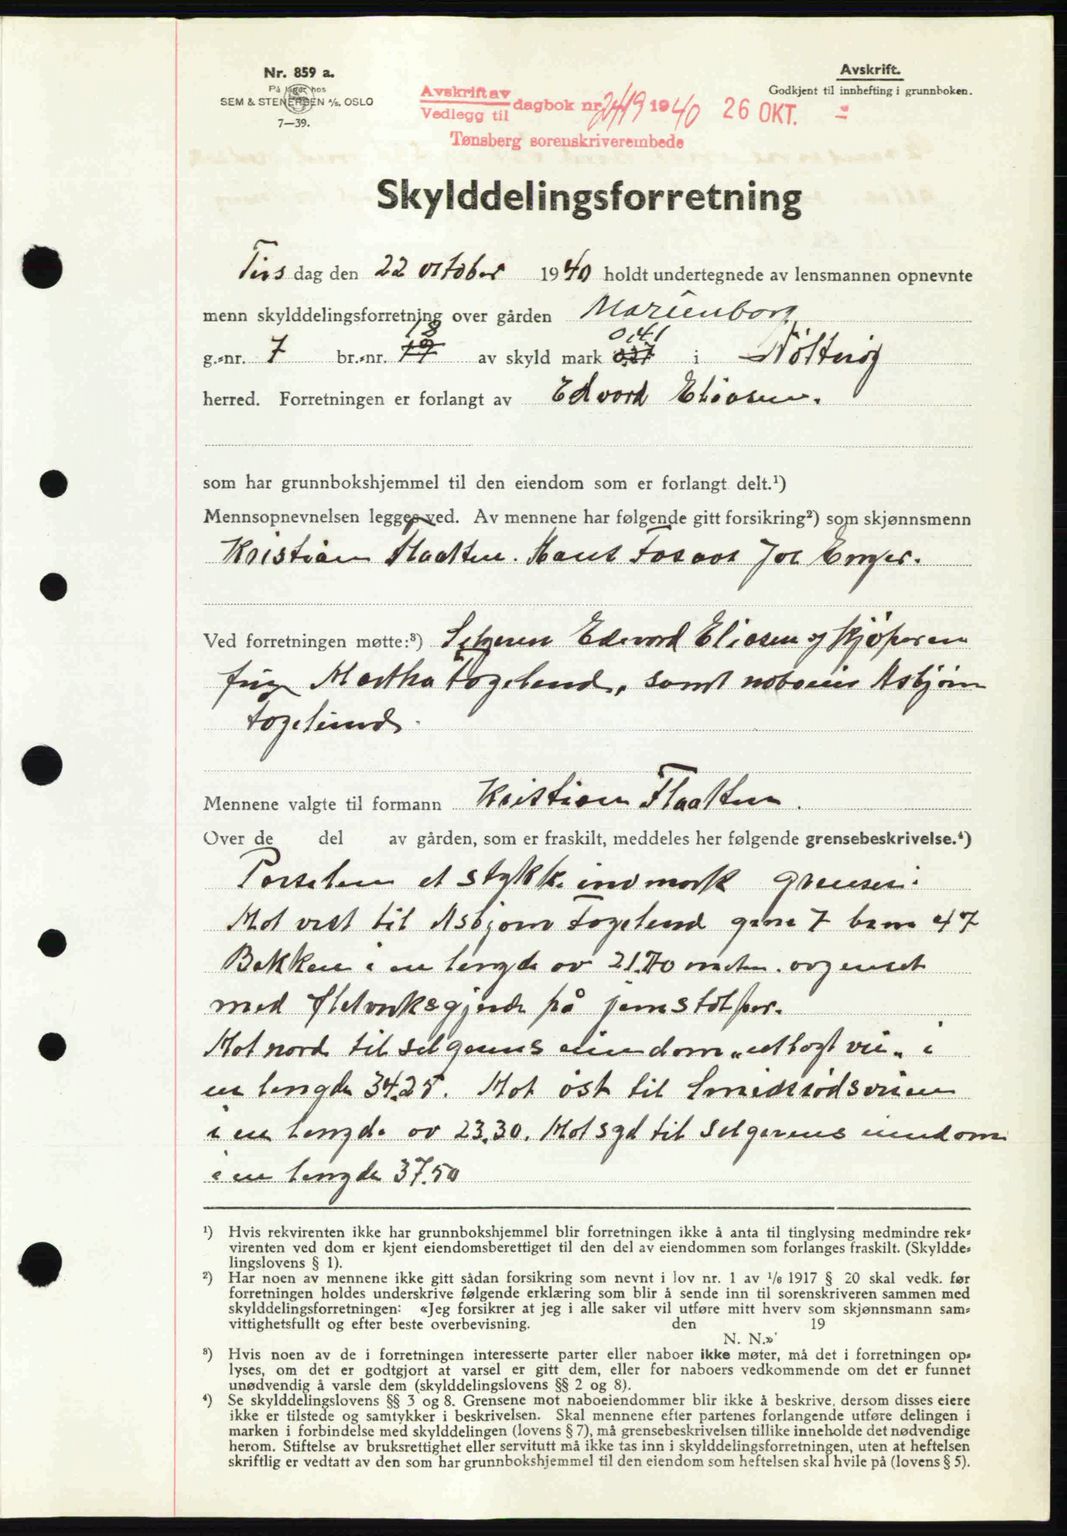 Nr. 859 a.
På lager hos
SEM & STENERSEN A/S, OSLO
7—39.
Avskrift.
Godkjent til innhefting i grunnboken.
Avskrift av
Vedlegg til
dagbok nr. 2419 1940 26 OKT.
Tønsberg sorenskriverembede
Skylddelingsforretning
Tirsdag den 22 oktober 1940 holdt undertegnede av lensmannen opnevnte
menn skylddelingsforretning over gården Marienborg
18 0,41
g.-nr. 7 br.-nr. 19 av skyld mark 0,27 i Nøtterøy
herred. Forretningen er forlangt av Edvard Eliasen.
som har grunnbokshjemmel til den eiendom som er forlangt delt.¹)
Mennsopnevnelsen legges ved. Av mennene har følgende gitt forsikring²) som skjønnsmenn
Kristian Flaatten. Hans Fosaas Joh Enger.
Ved forretningen møtte:³) Selgeren Edvard Eliasen og kjøperen
frue Martha Fogelund, samt naboens Asbjørn
Fogelund.
Mennene valgte til formann Kristian Flaatten.
Over de del av gården, som er fraskilt, meddeles her følgende grensebeskrivelse.⁴)
Parselen et stykk. innmark grenser:
Mot vest til Asbjørn Fogelund gnr 7 bnr 47
Bekken i en lengde av 21.70 meter. avgenset
med fletverksgjerde på jernstolper.
Mot nord til selgerens eiendom „utlagt vei„ i
en lengde 34.25. Mot øst til Smidsrødsveien
i en lengde av 23.30. Mot syd til selgerens eiendom
i en lengde 37.50
¹) Hvis rekvirenten ikke har grunnbokshjemmel blir forretningen ikke å anta til tinglysing medmindre rek-
virenten ved dom er kjent eiendomsberettiget til den del av eiendommen som forlanges fraskilt. (Skyldde-
lingslovens § 1).
²) Har noen av mennene ikke gitt sådan forsikring som nevnt i lov nr. 1 av 1/6 1917 § 20 skal vedk. før
forretningen holdes underskrive følgende erklæring som blir å sende inn til sorenskriveren sammen med
skylddelingsforretningen: «Jeg forsikrer at jeg i alle saker vil utføre mitt hverv som skjønnsmann sam-
vittighetsfullt og efter beste overbevisning. den 19
N. N.»
³) Hvis noen av de i forretningen interesserte parter eller naboer ikke møter, må det i forretningen op-
lyses, om det er godtgjort at varsel er gitt dem, eller for naboers vedkommende om det er funnet
unødvendig å varsle dem (skylddelingslovens §§ 2 og 8).
⁴) Se skylddelingslovens §§ 3 og 8. Grensene mot naboeiendommer blir ikke å beskrive, dersom disses eiere
ikke er tilstede og samtykker i beskrivelsen. Skal mennene efter partenes forlangende utføre delingen i
marken i forbindelse med skylddelingen (lovens § 7), må grensebeskrivelsen tillike inneholde det nødvendige
herom. Stiftelse av bruksrettighet eller servitutt må ikke tas inn i skylddelingsforretningen, uten at heftelsen
skriftlig er vedtatt av den som har grunnbokshjemmel til den eiendom som heftelsen skal hvile på (lovens § 5).